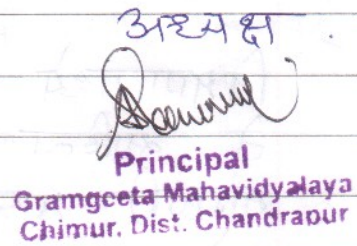 अध्यक्ष.
Principal
Gramgeeta Mahavidyalaya
Chimur. Dist. Chandrapur